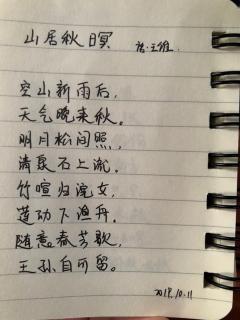 山居秋暝
唐·王维
空山新雨后，
天气晚来秋。
明月松间照，
清泉石上流。
竹喧归浣女，
莲动下渔舟。
随意春芳歇，
王孙自可留。
2018.10.11